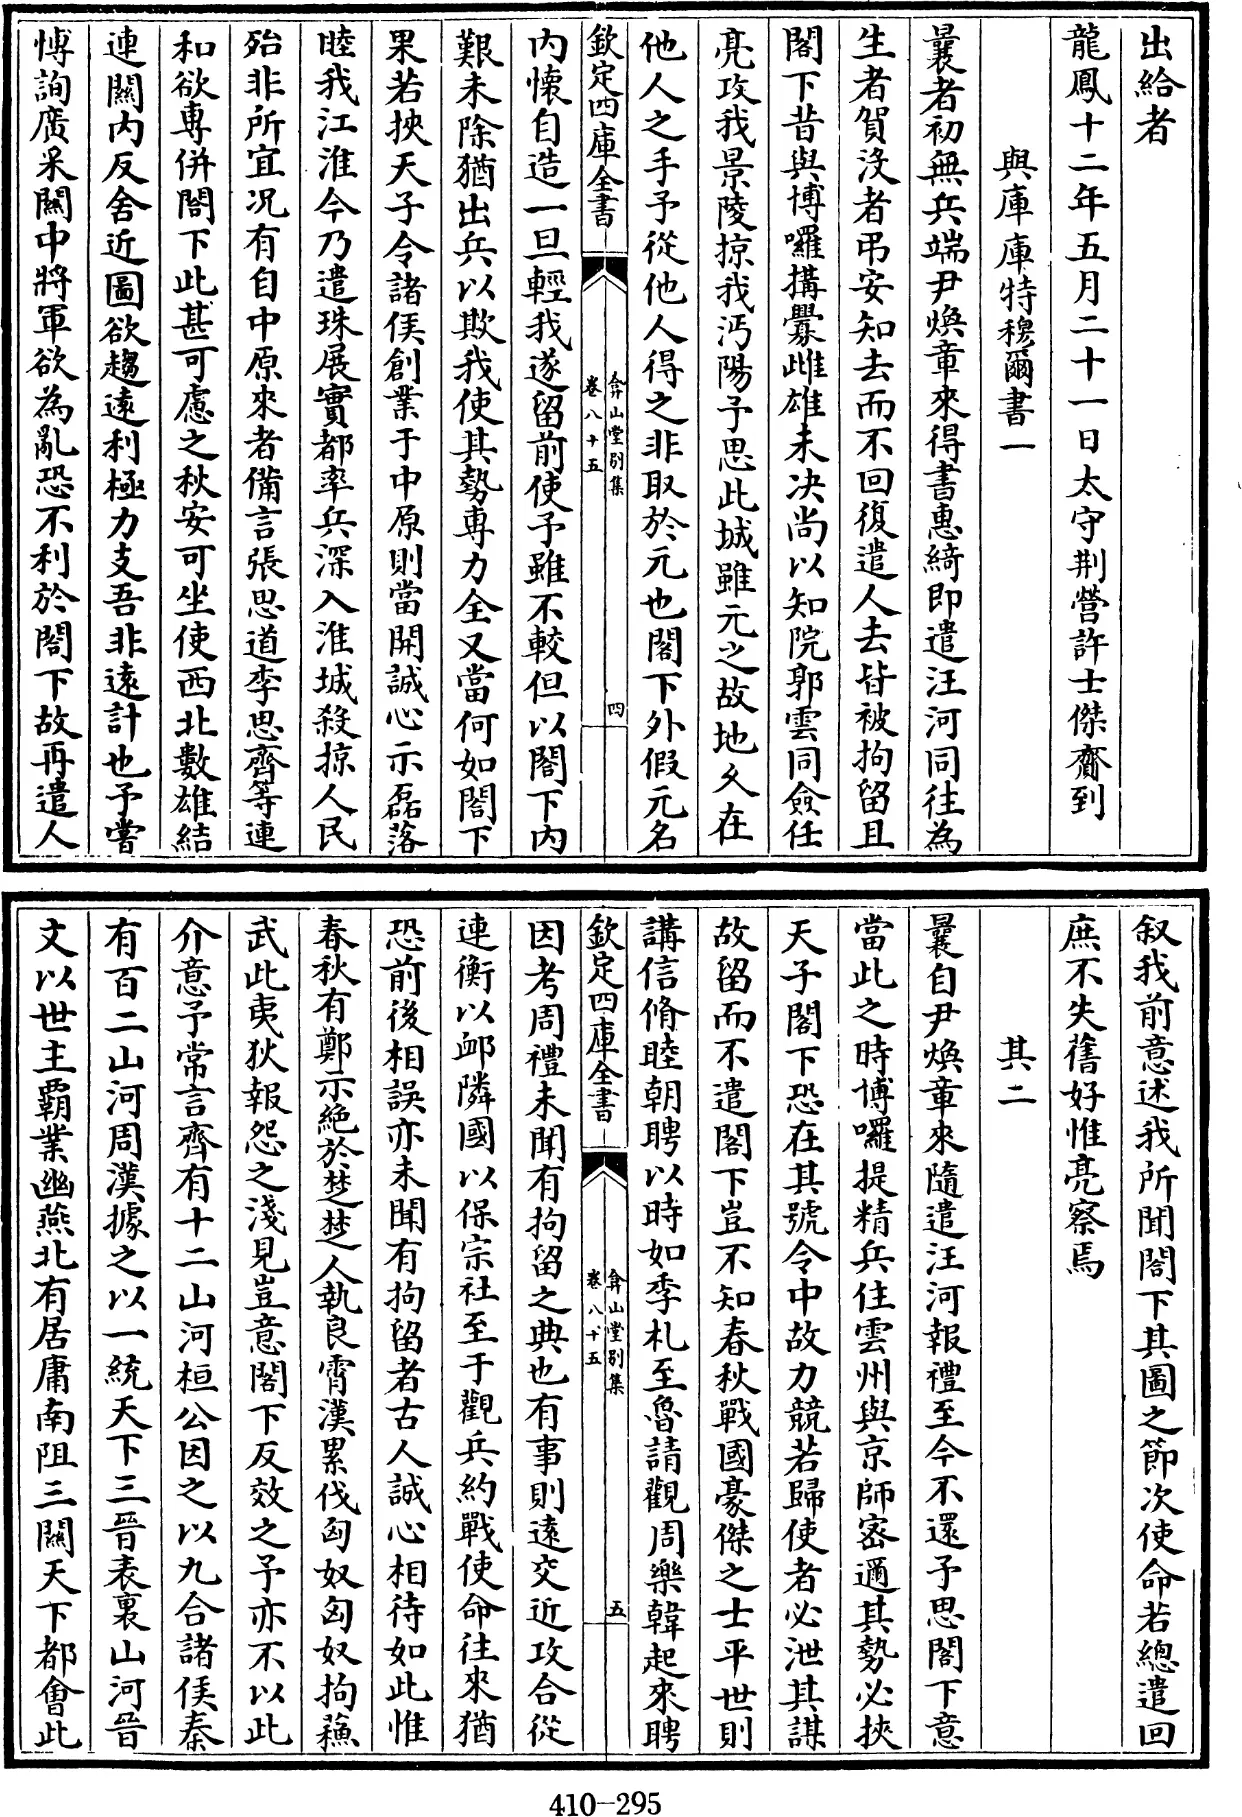 出給者
龍鳳十二年五月二十一日太守荆營許士傑齎到
與庫庫特穆爾書一
曩者初無兵端尹煥章來得書惠綺即遣汪河同往為
生者賀沒者弔安知去而不回復遣人去皆被拘留且
閣下昔與博囉搆釁雌雄未決尚以知院郭雲同僉任
亮攻我景陵掠我沔陽予思此城雖元之故地久在
他人之手予從他人得之非取於元也閣下外假元名
欽定四庫全書
弇山堂別集
卷八十五
四
內懷自造一旦輕我遂留前使予雖不較但以閣下內
艱未除猶出兵以欺我使其勢專力全又當何如閣下
果若挾天子令諸侯創業于中原則當開誠心示磊落
睦我江淮今乃遣珠展實都率兵深入淮城殺掠人民
殆非所宜况有自中原來者備言張思道李思齊等連
和欲專併閣下此甚可慮之秋安可坐使西北數雄結
連關內反舍近圖欲趨遠利極力支吾非遠計也予嘗
博詢廣采關中將軍欲為亂恐不利於閣下故再遣人
叙我前意述我所聞閣下其圖之節次使命若總遣回
庶不失舊好惟亮察焉
其二
曩自尹煥章來隨遣汪河報禮至今不還予思閣下意
當此之時博囉提精兵住雲州與京師密邇其勢必挾
天子閣下恐在其號令中故力競若歸使者必泄其謀
故留而不遣閣下豈不知春秋戰國豪傑之士平世則
講信脩睦朝聘以時如季札至魯請觀周樂韓起來聘
欽定四庫全書
弇山堂別集
卷八十五
五
因考周禮未聞有拘留之典也有事則遠交近攻合從
連衡以邮隣國以保宗社至于觀兵約戰使命往來猶
恐前後相誤亦未聞有拘留者古人誠心相待如此惟
春秋有鄭示絶於楚楚人執良霄漢累伐匈奴匈奴拘蘓
武此夷狄報怨之淺見豈意閣下反效之予亦不以此
介意予常言齊有十二山河桓公因之以九合諸侯秦
有百二山河周漢據之以一統天下三晉表裏山河晉
文以世主霸業幽燕北有居庸南阻三關天下都會此
410-295